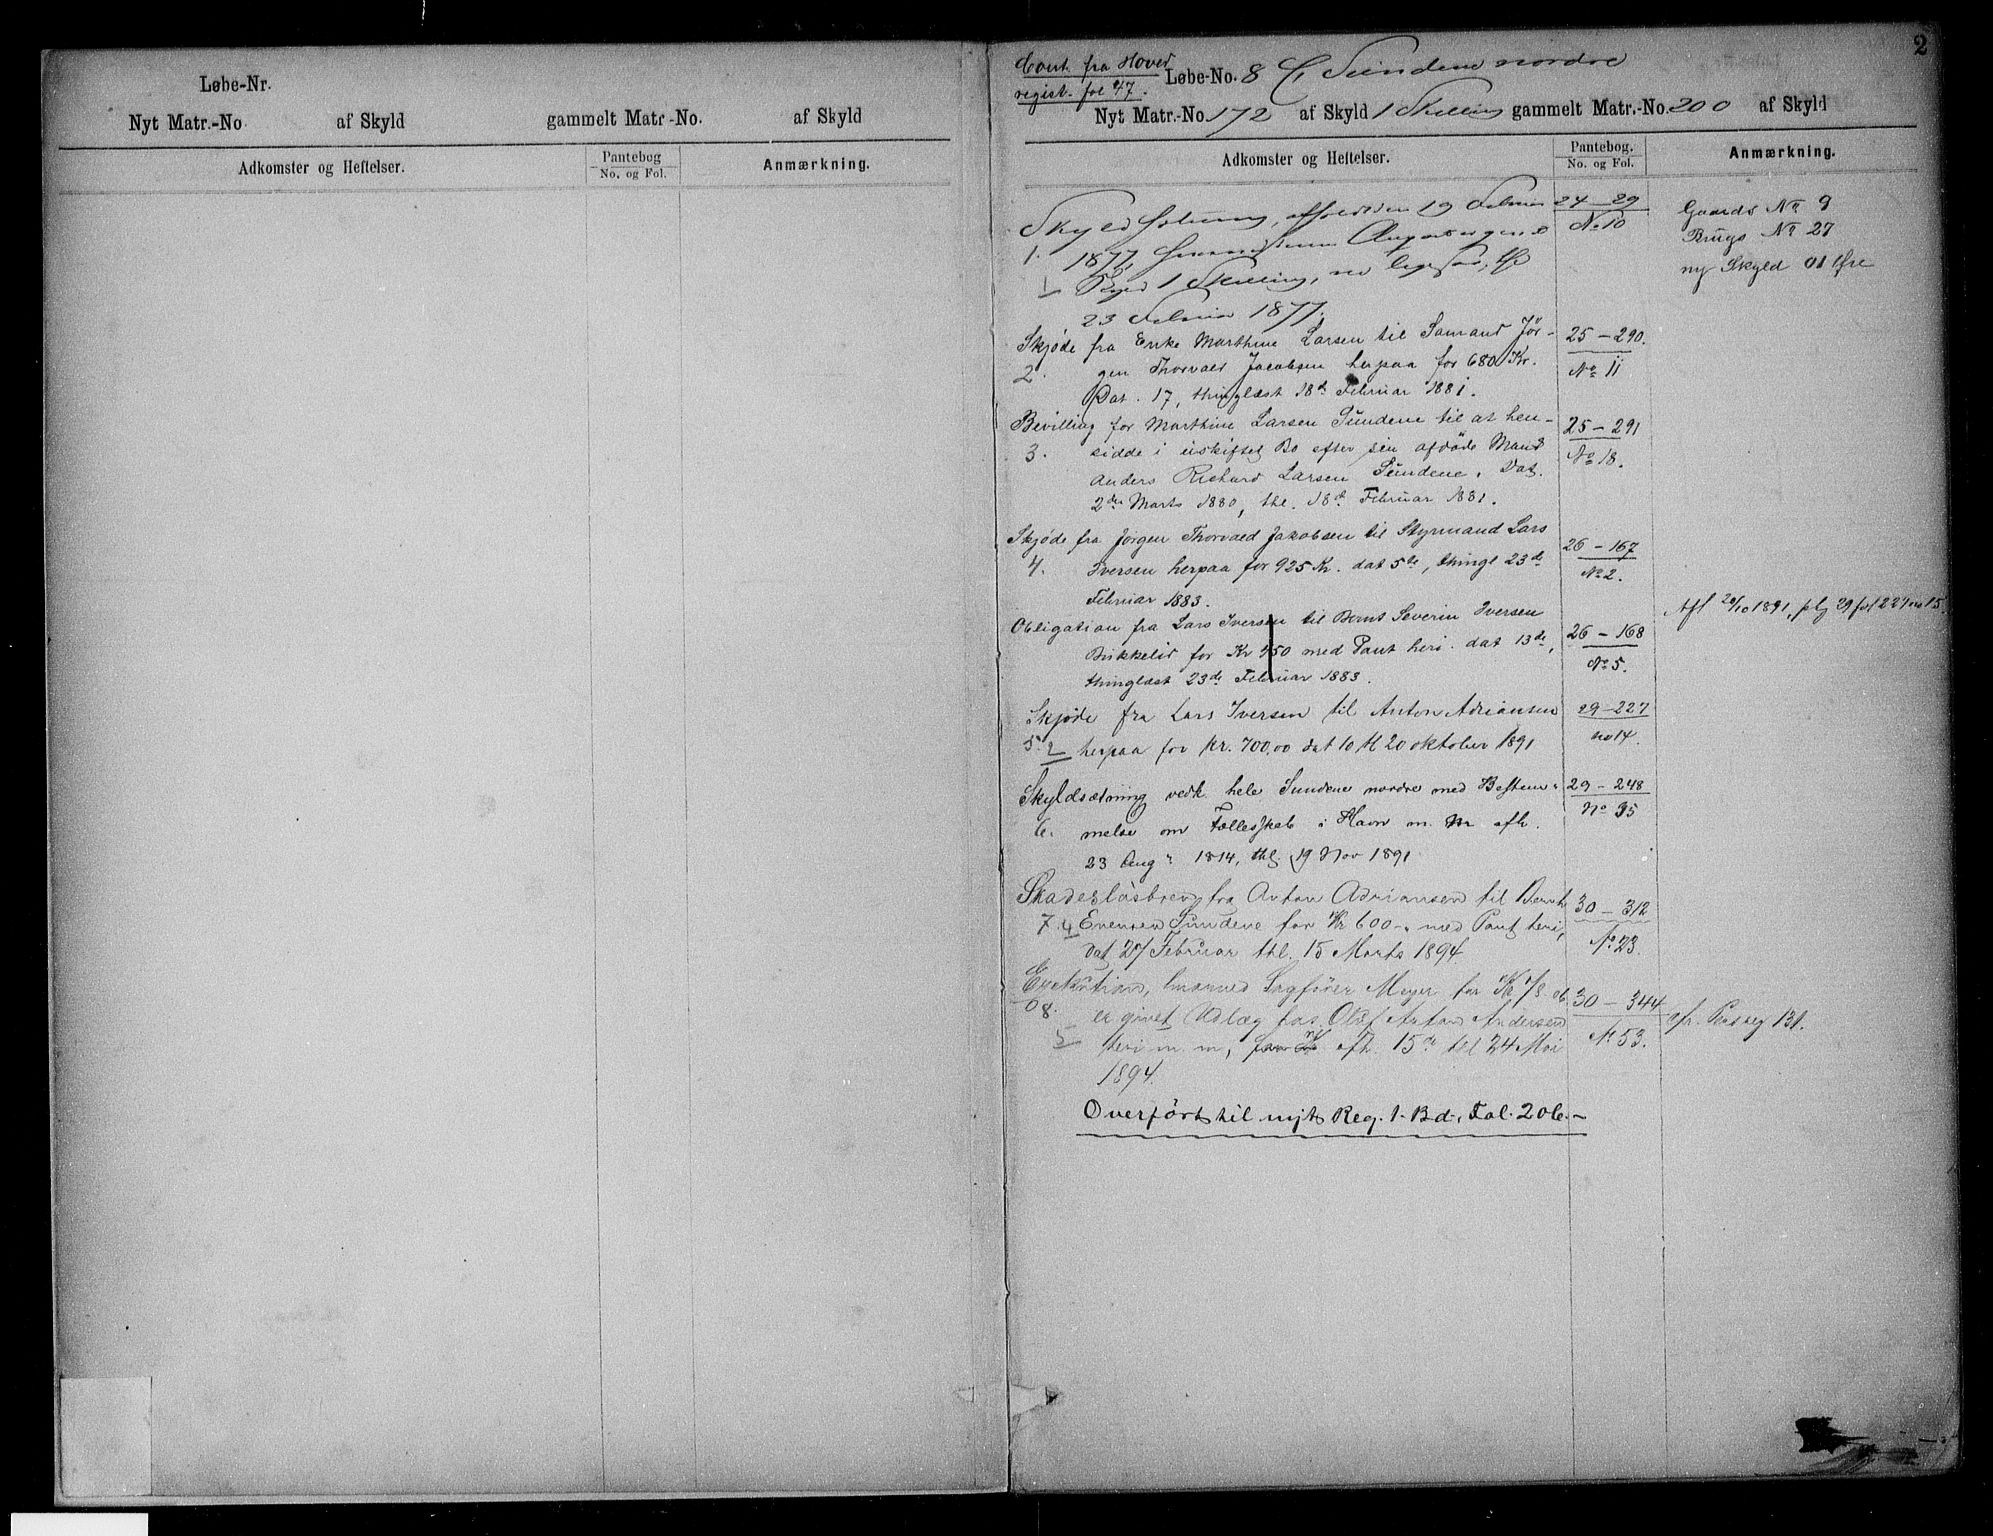 Løbe-Nr.
Nyt Matr.-No af Skyld gammelt Matr-No. af Skyld
Adkomster og Heftelser. Pantebog No. og Fol. Anmærkning.
2
Cont. fra Hoved
regist. fol 47.
Løbe-No. 8 Sundene nordre
Nyt Matr.-No. 172 af Skyld 1 Skilling gammelt Matr.-No. 200 af Skyld
Adkomster og Heftelser. Pantebog. No. og Fol. Anmærkning.
19 Februar 24-29 Gaards No 9
1. 1877, No 10 Brugs No 27
1 Skyld 1 Skilling, ny Skyld 01 Øre
23 Februar 1877.
Skjøde fra Enke Marthine Larsen til Sømand Jör- 25-290.
2. gen Thorvald Jacobsen herpaa for 680 Kr. No 11
Dat. 17, thinglæst 18de Februar 1881.
Bevilling for Marthine Larsen Sundene til at hen- 25-291
3. sidde i uskiftet Bo efter sin afdöde Mand No 18.
Anders Richard Larsen Sundene. Dat.
2den Marts 1880, thl. 18de Februar 1881.
Skjøde fra Jørgen Thorvald Jakobsen til Styrmand Lars 26-167
4. Iversen herpaa for 925 Kr. dat 5te, thingl 23de No 2.
Februar 1883.
Obligation fra Lars Iversen til Bernt Severin Iversen Afl 20/10 1891, pbg 29 fol 227 no 15.
Birkkelid for Kr 450 med Pant heri. dat 13de, 26-168
thinglæst 23de Februar 1883. No 5.
Skjøde fra Lars Iversen til Anton Adriansen 29-227
5. 2 herpaa for Kr. 700,00 dat 10 tl 20 oktober 1891 no 14.
Skyldsætning vedk hele Sundene nordre med Bestem- 29-248
6. melse om Fællesskab i Havn m. m afh. No 35
23 Aug 1814, thl. 19 Nov 1891
Skadesløsbrev fra Anton Adriansen til Bernt 30-312
7. 4 Evensen Sundene for Kr 600-. med Pant heri, No 23.
dat 27 Februar thl. 15 Marts 1894
Exekution, hvorved Sagfører Meyer for Kr 78. 30-344
8. er givet Udlæg hos Oluf Anton Andersen cfr. Pers reg 131.
5 heri m. m, afh. 15de tl 24 Mai No 53.
1894.
Overført til nyt Reg. 1. Bd., Fol. 206.-